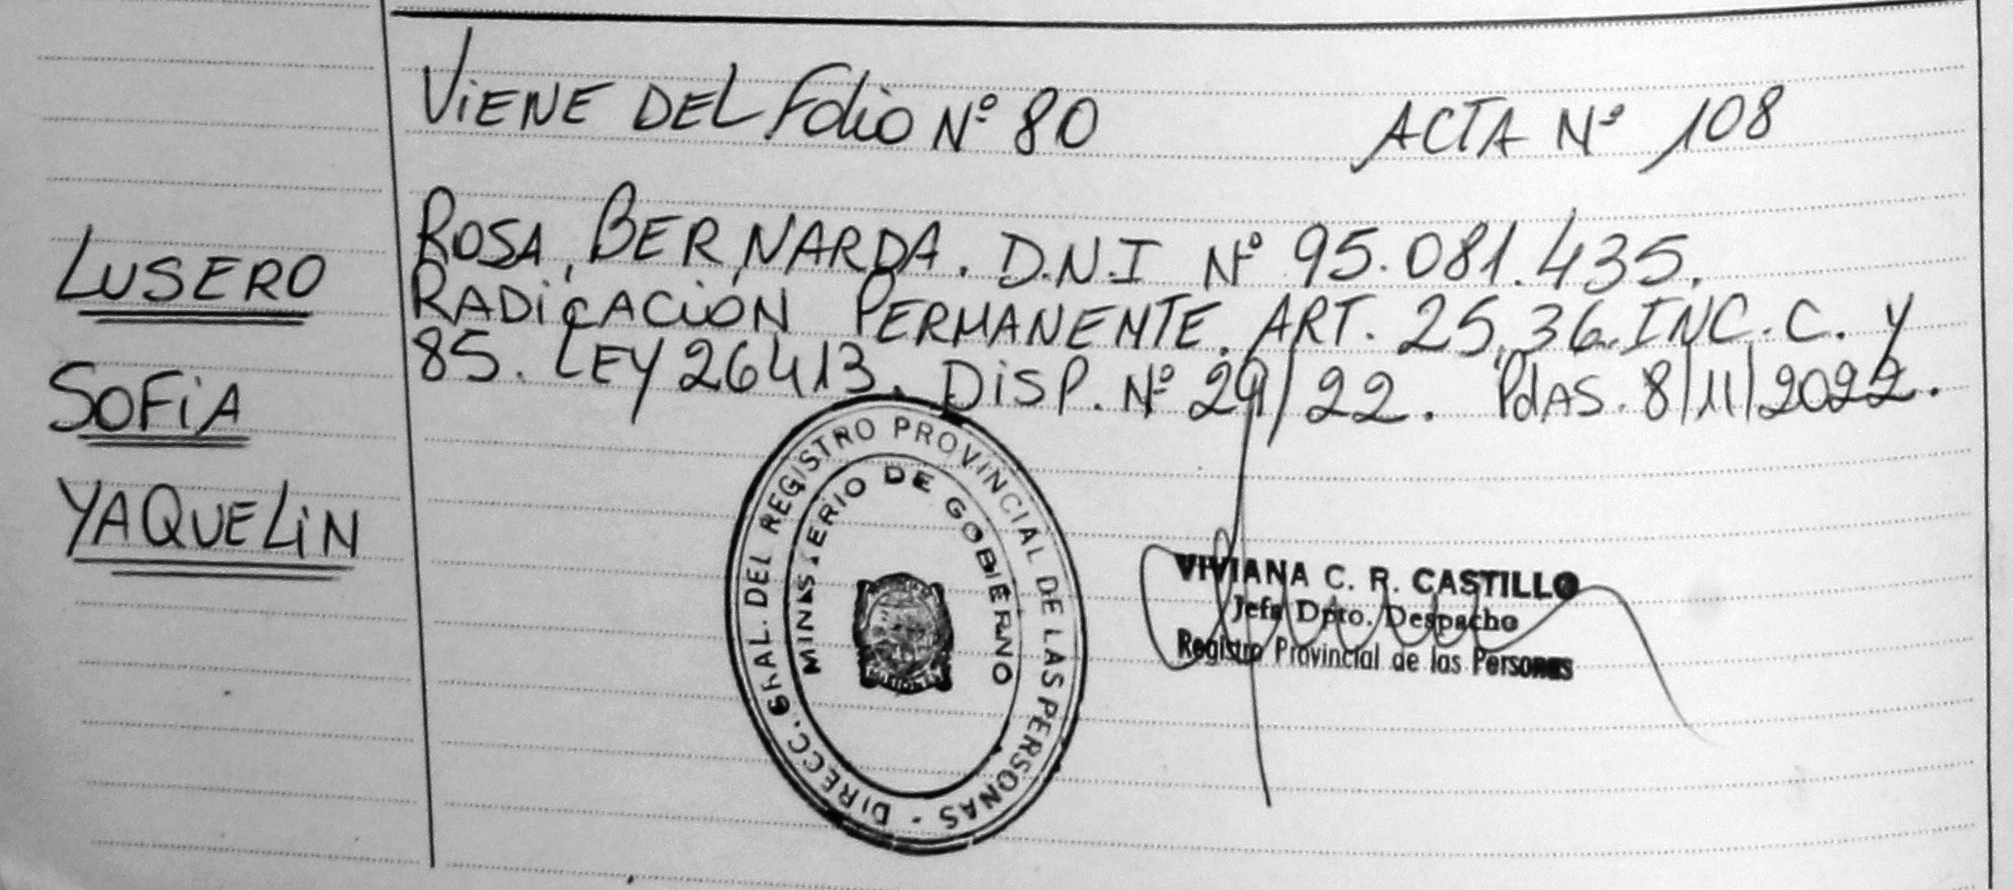 VIENE DEL Folio Nº 80
ACTA Nº 108
LUSERO
SOFIA
YAQUELIN
ROSA, BERNARDA. D.N.I Nº 95.081.435.
RADICACIÓN PERMANENTE. ART. 25, 36. INC. C. Y
85. LEY 26413. DISP. Nº 29/22. PdAS. 8/11/2022.
DIRECC. GRAL. DEL REGISTRO PROVINCIAL DE LAS PERSONAS -
MINISTERIO DE GOBIERNO
VIVIANA C. R. CASTILLO
Jefa Dpto. Despacho
Registro Provincial de las Personas